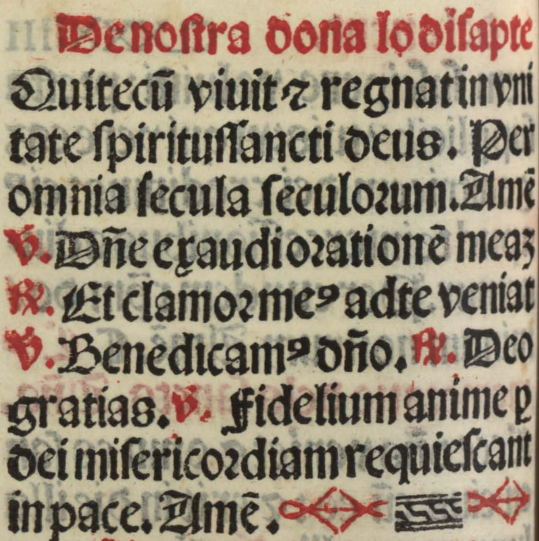 De nostra dona lo disapte
Qui tecū viuit ⁊ regnat in vni
tate spiritussancti deus. Per
omnia secula seculorum. Amē
℣. Dñe exaudi orationē meaʒ
℟. Et clamor meꝰ ad te veniat
℣. Benedicamꝰ dño. ℟. Deo
gratias. ℣. Fidelium anime ꝑ
dei misericordiam requiescant
in pace. Amē.